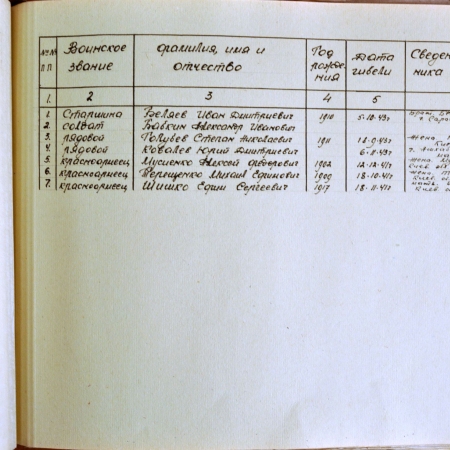 №№ Воинское фамилия, имя и Год Дата Сведен
пп звание отчество рожде- гибели ника
ния
1. 2 3 4 5
1. Старшина Беляев Иван Дмитриевич 1910 5-10-43г
2. солдат Бабкин Александр Иванович
3. рядовой Голубев Степан Николаевич 1911 18-9-43г жена
4. рядовой Ковалев Юрий Дмитриевич 6-11-43г
5. красноармеец Мусиенко Алексей Федорович 1902 12-12-41г жена
6. красноармеец Терещенко Михаил Ефимович 1909 18-10-41г жена
7. красноармеец Шишко Ефим Сергеевич 1917 18-11-41г